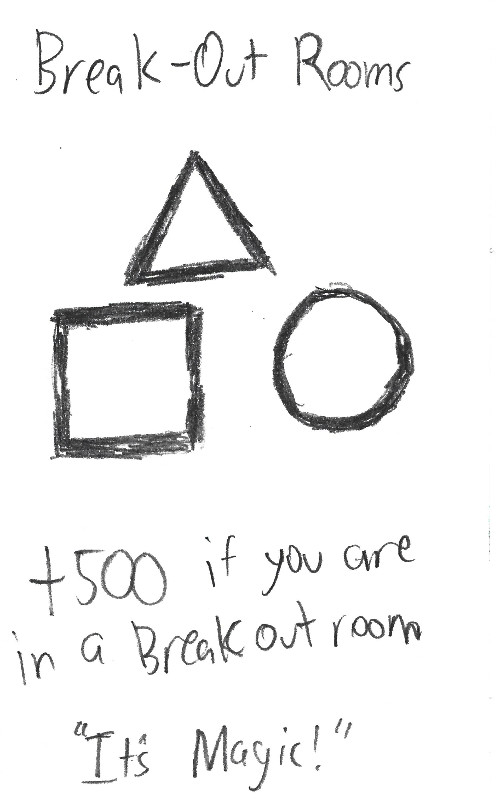 Break-Out Rooms
+500 if you are
in a Break out room
"It's Magic!"